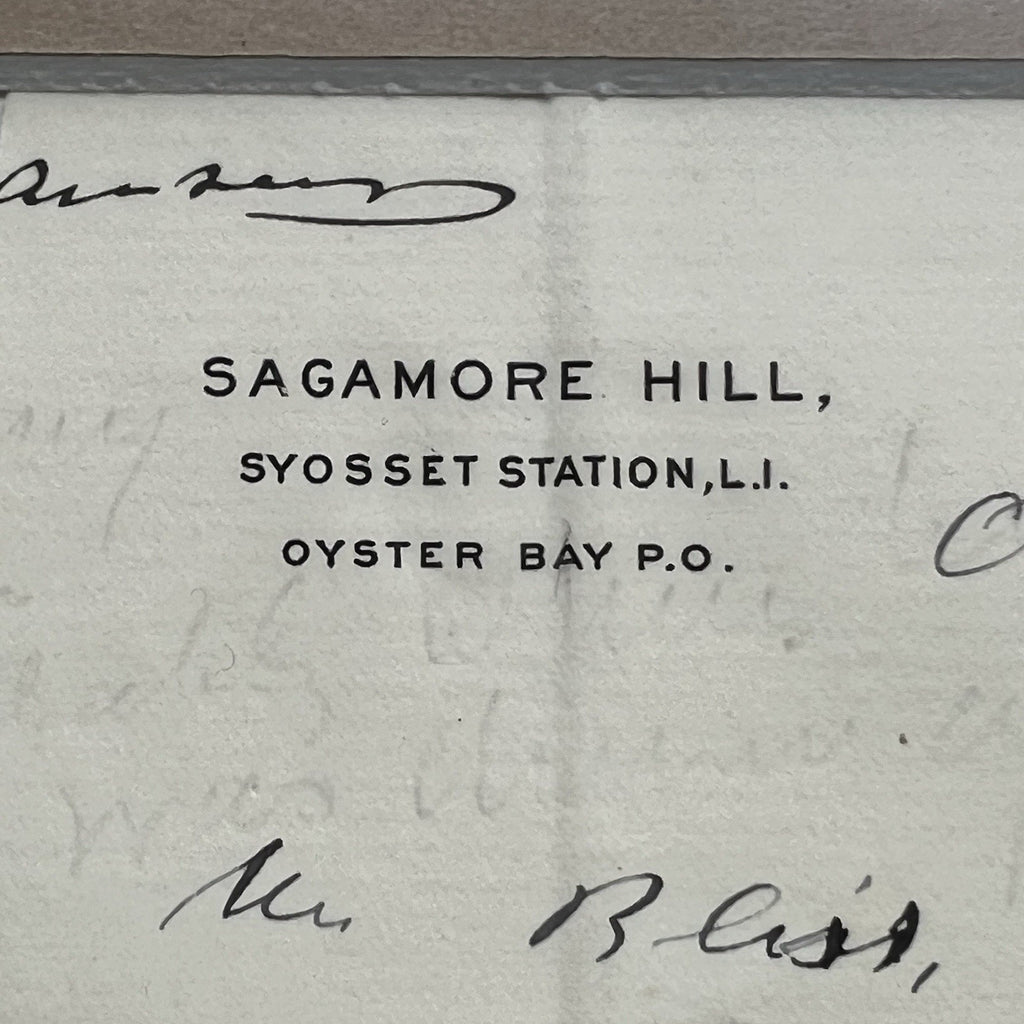 SAGAMORE HILL,
SYOSSET STATION, L.I.
OYSTER BAY P.O.
Mr. Bliss,